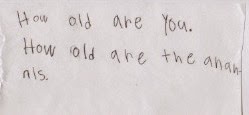 How old are you.
How old are the anam-
nls.